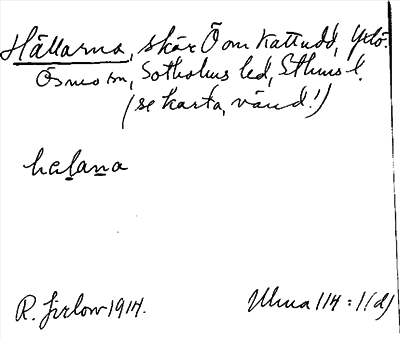 Hällarna, skär Ö om Kattudd, Yxlö.
Ösmo sn, Sotholms hd, Sthms l.
(se karta, vänd!)
halana
R. Jirlow 1914.
Ulma 114:1(d)